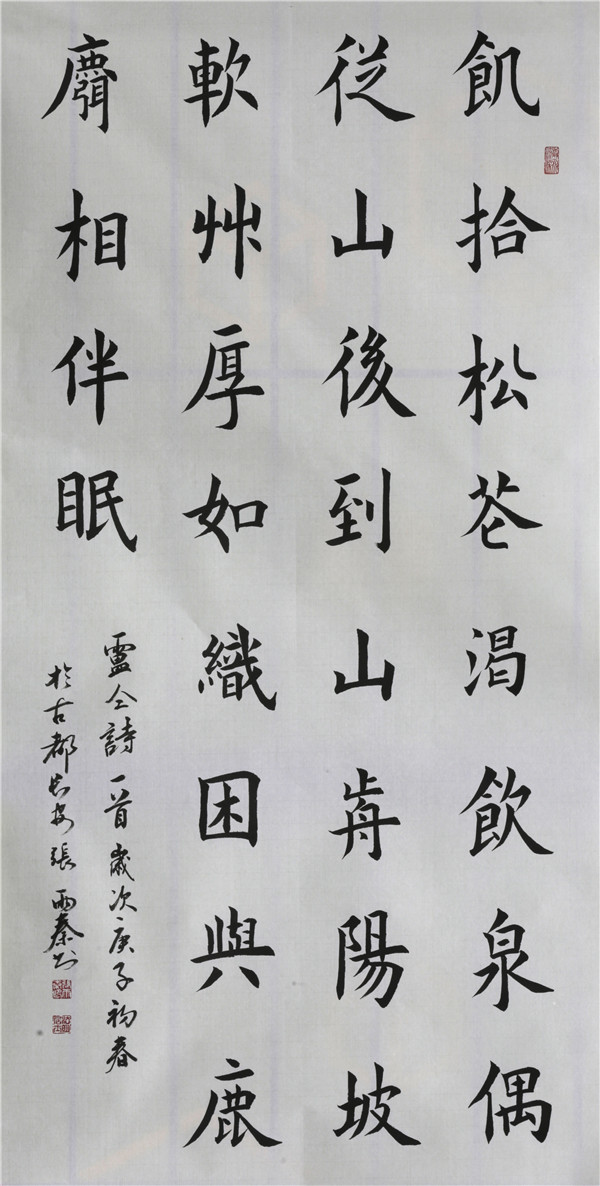 飢拾松花渴飲泉偶
從山後到山歬陽坡
軟艸厚如織困與鹿
麛相伴眠
盧仝詩一首歲次庚子初春
於古都長安張雨秦書